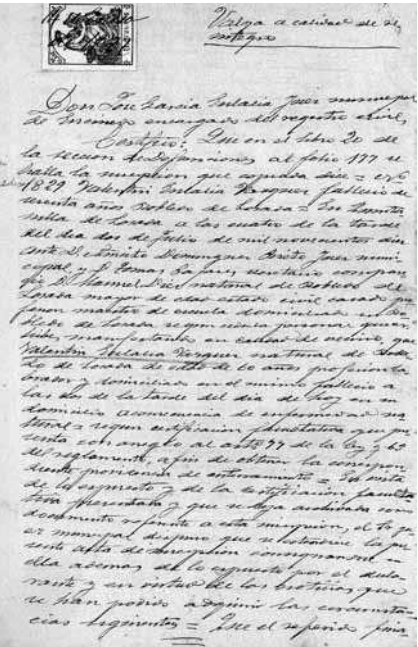 Valga a calidad de re
integro
Don José Garcia Eulalia Juez municipal
de Encinedo encargado del registro civil,
Certifico: Que en el libro 20 de
la seccion de defunciones al folio 177 se
halla la inscripcion que copiada dice = Nº
1829 Valentin Eulalia Vazquez fallecio de
sesenta años Robledo de Losada = En
de Losada a las cuatro de la tarde
del dia dos de Julio de mil novecientos diez
ante D. Dominguez Juez muni
cipal y D. Tomas secretario compare
D. Manuel Diez natural de Robledo de
Losada mayor de edad estado civil casado pro
fesion maestro de escuela domiciliado en Ro
bledo de Losada segun cedula personal que
manifestando en calidad de vecino, que
Valentin Eulalia Vazquez natural de Roble
do de Losada de edad de 60 años profesion la
brador y domiciliado en el mismo fallecio a
las dos de la tarde del dia de hoy en su
domicilio a consecuencia de enfermedad na
tural = segun certificacion facultativa que pre
senta con arreglo al artº 77 de la ley y 63
del reglamento, a fin de obtener la correspon
diente de enterramiento = En vista
de lo expuesto y de la certificacion faculta
tiva presentada y que se deja archivada como
documento referente a esta inscripcion, el Sr. Ju
ez municipal dispuso que se extendiera la pre
sente acta de inscripcion consignandose en
ella ademas de lo expuesto por el decla
rante y en virtud de las noticias que
se han podido adquirir las circunstan
cias siguientes = Que el referido fina